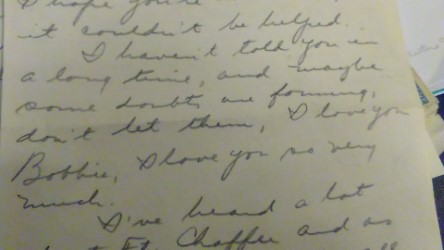 I hope you're
it couldn't be helped.
I haven't told you in
a long time, and maybe
some doubts are forming,
don't let them, I love you
Bobbie, I love you so very
much.
I've heard a lot
about Ft. Chaffee and as